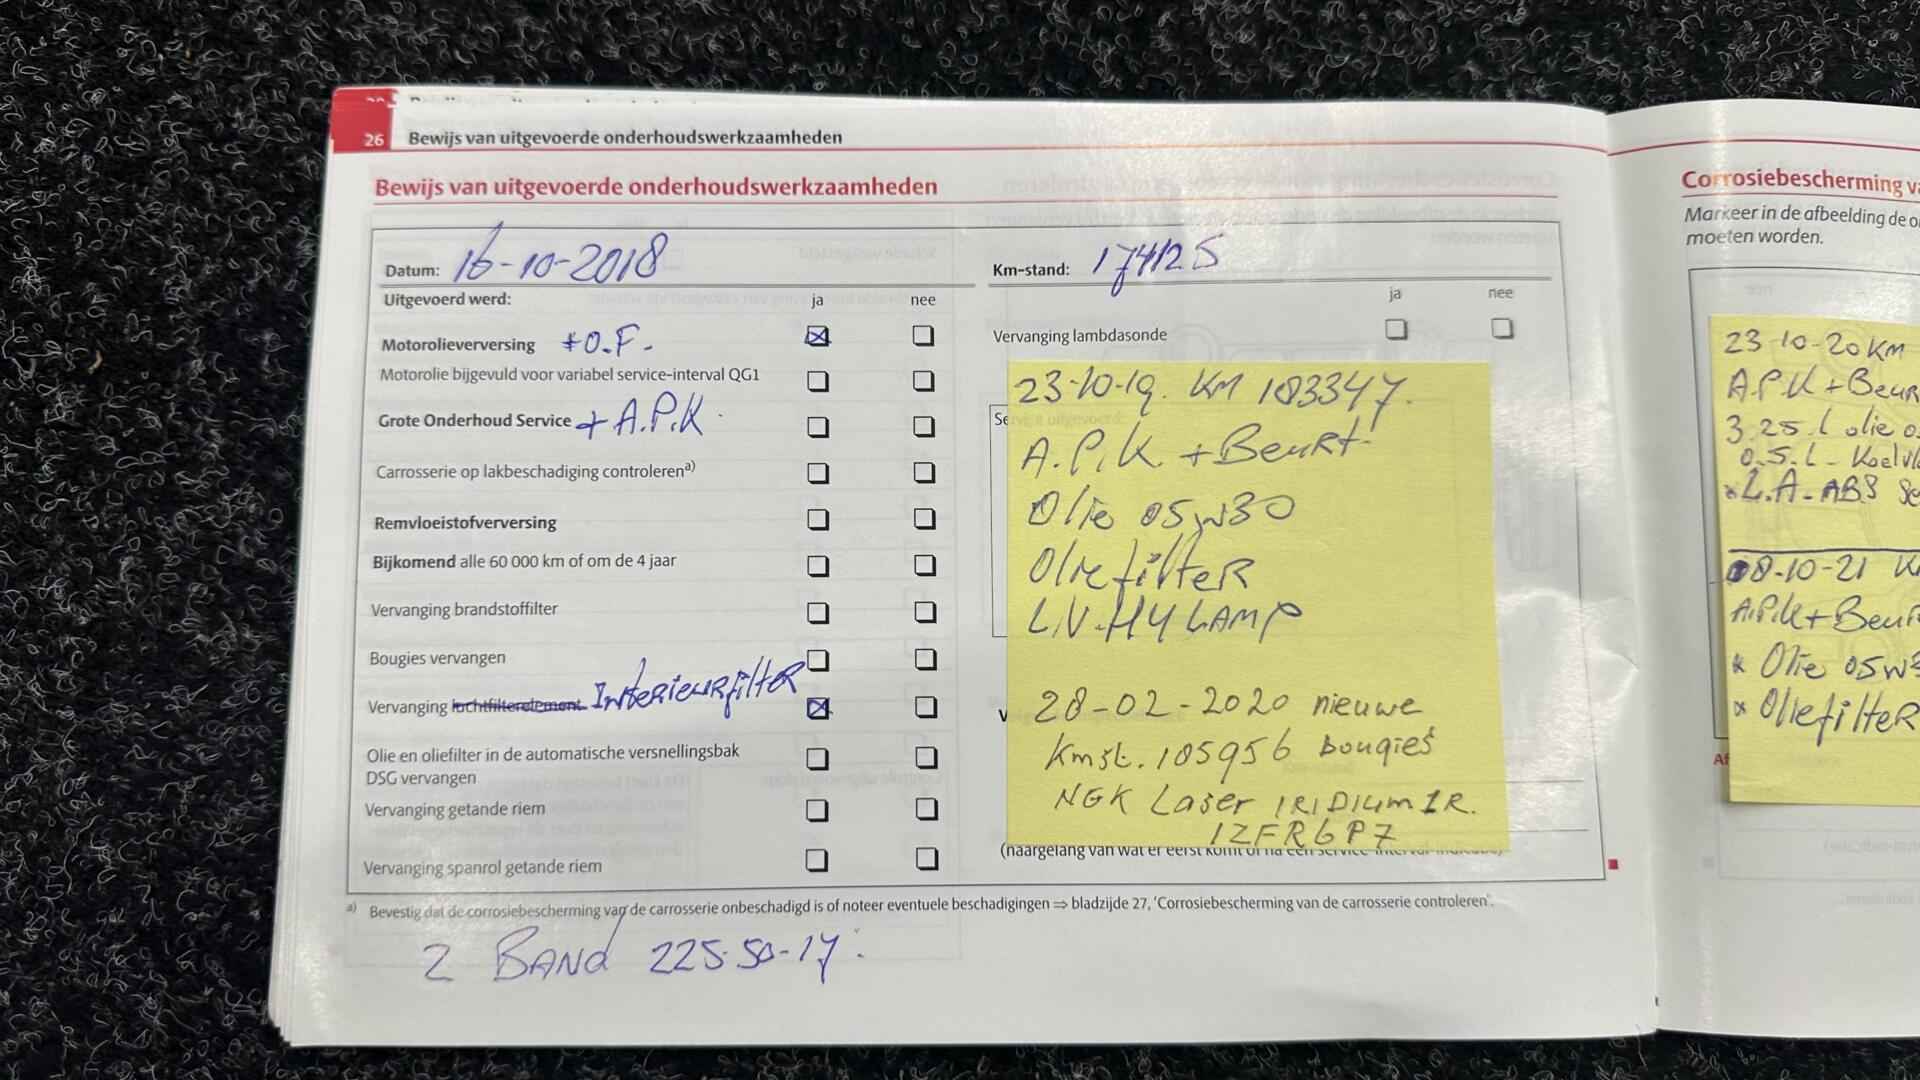 26 Bewijs van uitgevoerde onderhoudswerkzaamheden
Bewijs van uitgevoerde onderhoudswerkzaamheden
Datum: 16-10-2018
Km-stand: 174125
Uitgevoerd werd: ja nee
ja nee
Motorolieverversing + O.F.
Vervanging lambdasonde
Motorolie bijgevuld voor variabel service-interval QG1
Grote Onderhoud Service + A.P.K.
Carrosserie op lakbeschadiging controleren a)
Remvloeistofverversing
Bijkomend alle 60 000 km of om de 4 jaar
Vervanging brandstoffilter
Bougies vervangen
Vervanging luchtfilterelement InterieurfilteR
Olie en oliefilter in de automatische versnellingsbak
DSG vervangen
Vervanging getande riem
Vervanging spanrol getande riem
23-10-19. KM 183347.
A.P.K. + BeuRt
Olie 05W30
OliefilteR
L.V. H4 LAMP
28-02-2020 nieuwe
Kmst. 185956 bougies
NGK Laser IRIDIum IR.
IZFR6P7
(naargelang van wat er eerst komt of na een service-interval-indicatie)
a) Bevestig dat de corrosiebescherming van de carrosserie onbeschadigd is of noteer eventuele beschadigingen ⇒ bladzijde 27, 'Corrosiebescherming van de carrosserie controleren'.
2 BANd 225-50-17.
Corrosiebescherming va
Markeer in de afbeelding de o
moeten worden.
23-10-20 KM
A.P.K + Beur
3.25.l olie
0.5.L - Koelvl
L.A. ABS Se
08-10-21 K
A.P.K + Beur
* Olie 05W3
* OliefilteR
Af